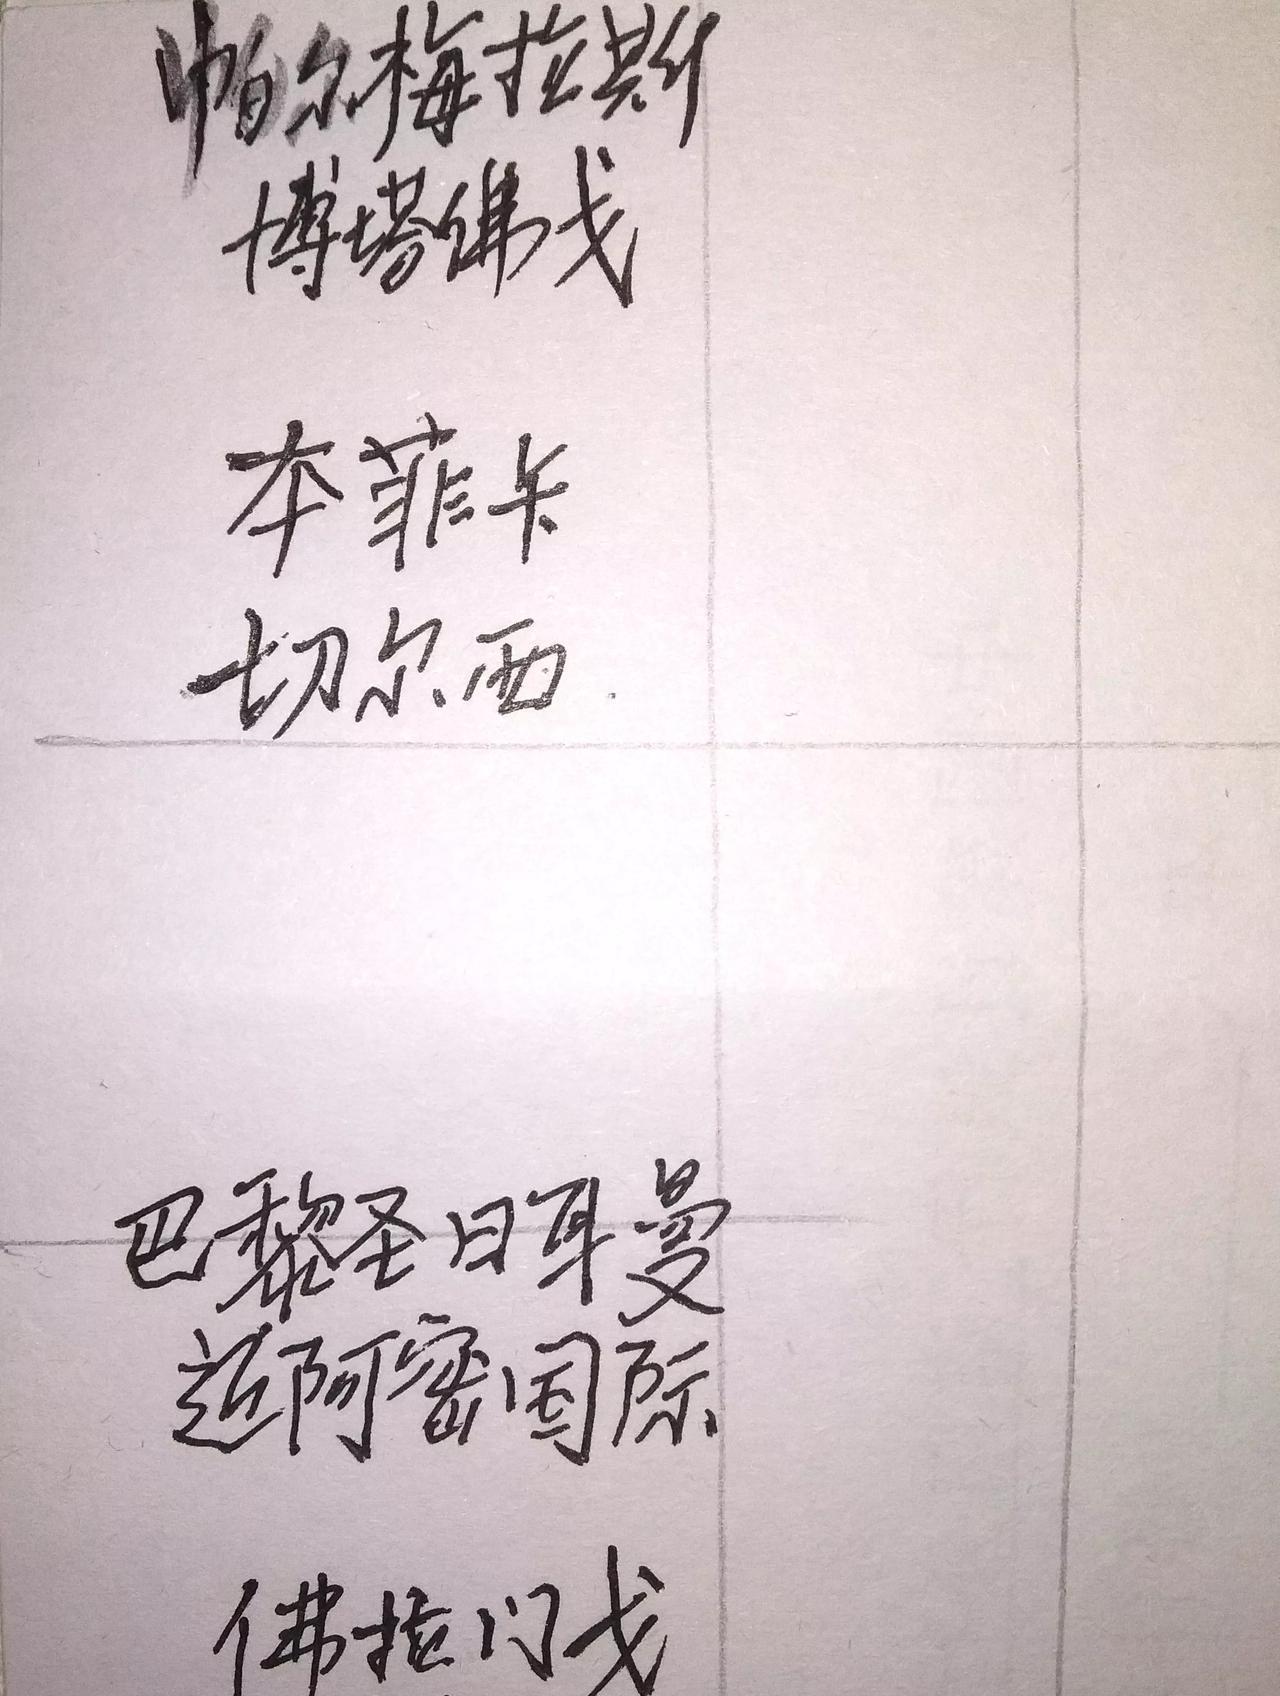 帕尔梅拉斯
博塔佛戈
本菲卡
切尔西
巴黎圣日耳曼
迈阿密国际
佛拉门戈